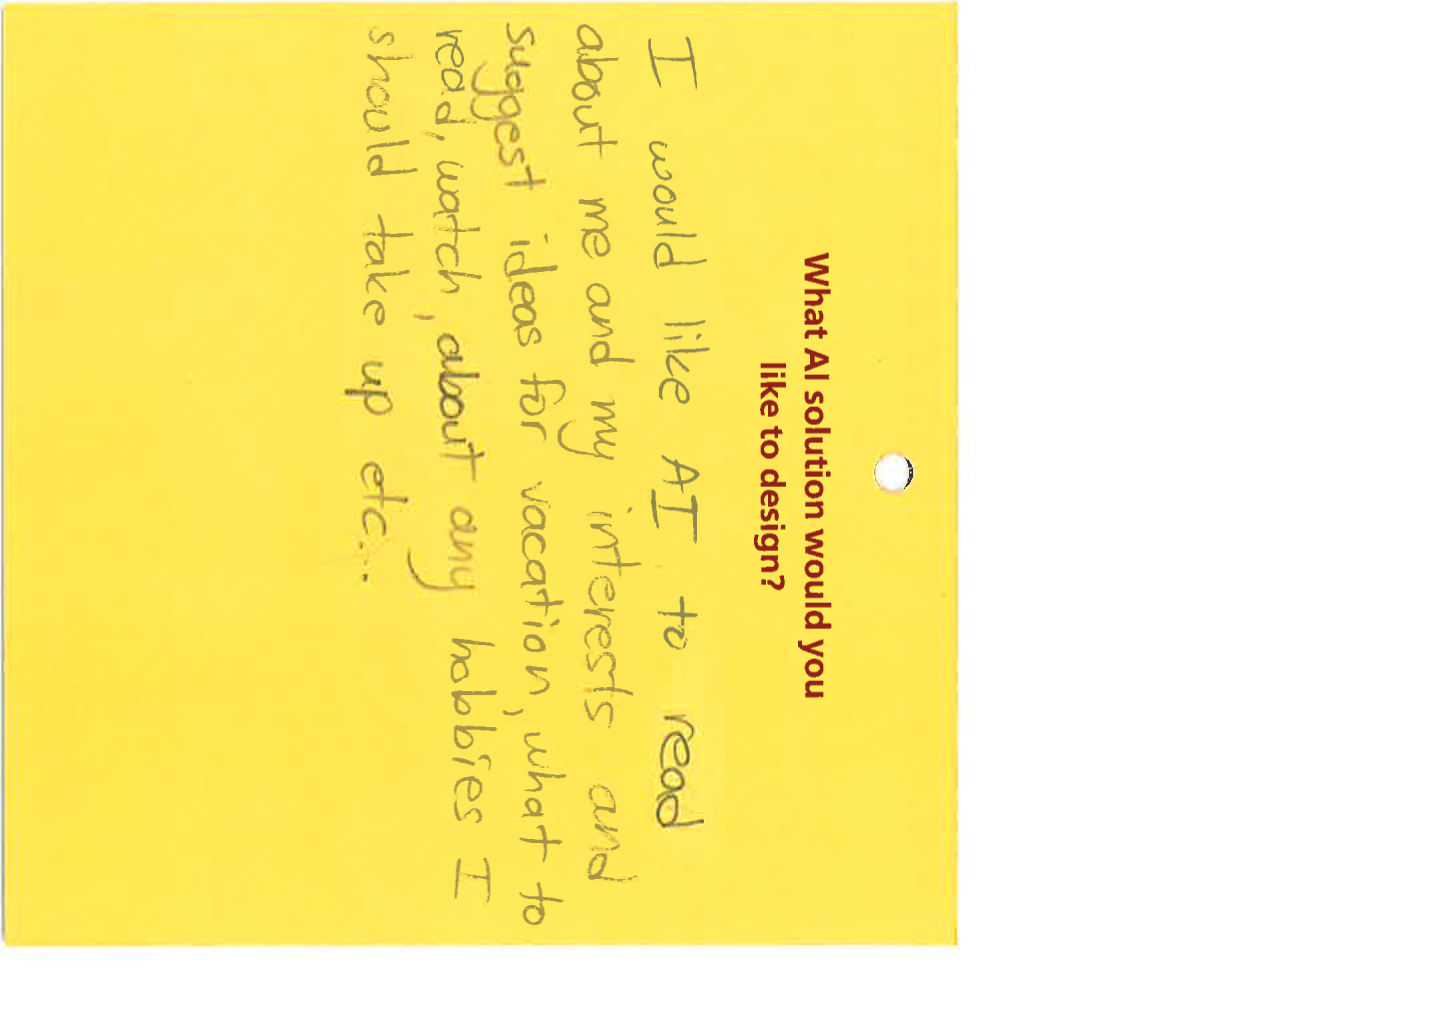 What AI solution would you
like to design?
I would like AI to read
about me and my interests and
suggest ideas for vacation, what to
read, watch, about any hobbies I
should take up etc...